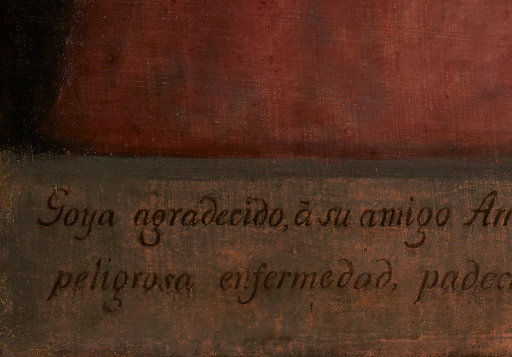 Goya agradecido, á su amigo
peligrosa enfermedad,